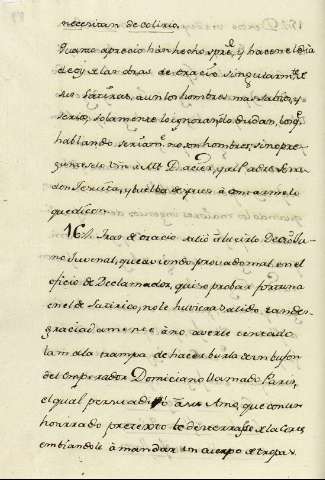 necesitan de colirio.
Quanto aprecio han hecho spre, y hacen el dia
de oy de las obras de Oracio, singularmte
sus Satiras, aun los hombres mas sabios, y
serios, solamente lo ignoran, lo dudan, los q
hablando seriamte no son hombres, sino pre-
gunteselo Vm à Mr Dacier, y al Padre
don Jesuita, y buelba despues à contarmelo
que dicen.
16. Tras de Oracio salió à la luz Decio Ju-
nio Juvenal, que aviendo provado mal en el
oficio de Declamador, quiso probar fortuna
en el de Satirico, no le huviera salido tan des-
graciadamente à no averle tentado
la mala trampa de hacer burla de un bufon
del Emperador Domiciano llamado Paris,
el qual persuadió à su Amo, que con un
honrrado pretexto le desterrasse de la Corte
embiandole à mandar un cuerpo de tropas